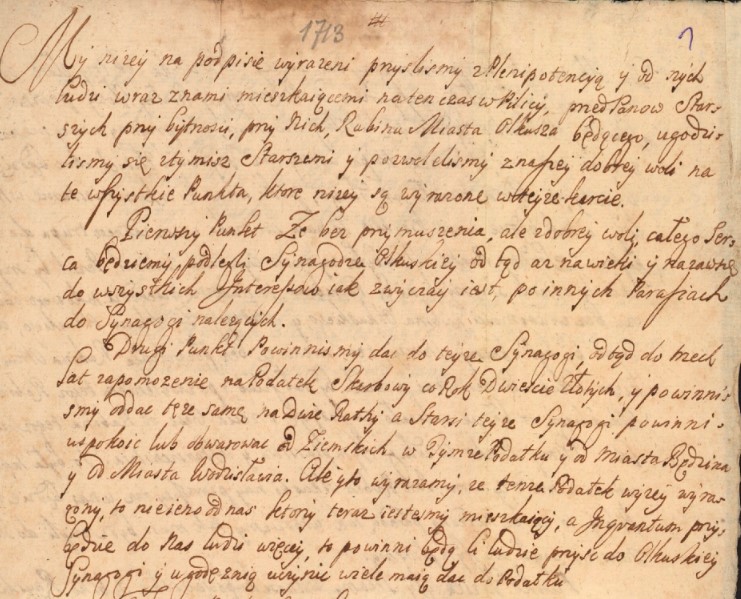 1713 #
My niżey na podpisie wyrażeni pryslismy z Plenipotencyą y od nych
ludzi wraz znami mieszkaiącemi na ten czas w Pilicy, przed Panow Star=
szych przy bytności, przy Nich, Rabina Miasta Olkusza będącego, ugodzi=
lismy się ztymisz Starszemi y pozwolelismy znaszey dobrey woli na
te wszystkie Punkta, ktore niżey są wyrażone w teyże karcie.
Pierwszy Punkt Ze bez prymuszenia, ale z dobrey woli, całego Ser=
ca będziemy podlegli Synagodze Olkuskiey od tąd aż na wieki y nazawsze
do wszystkich Interessow iak zwyczay iest, po innych Parafiach
do Synagogi należących.
Drugi Punkt Powinnismy dac do teyże Synagogi, od tąd do trzech
Lat zapomożenie na Podatek Skarbowy co Rok Dwieście Złotych, y powinni=
smy oddac też same na Dwie Rathy a Starsi teyże Synagogi powinni
uspokoic lub obwarowac od Ziemskich w Tymże Podatku y od Miasta Będzina
y od Miasta Wodzisławia. Ale y to wyrażamy, że tenże Podatek wyżey wyra=
żony, to nie icno od nas ktorzy teraz iestesmy mieszkaiący, a Inqvantum przy=
będzie do Nas ludzi więcey, to powinni będą ci ludzie przyiść do Olkuskiey
Synagogi y ugodę z nią uczynic wiele maią dac do Podatku